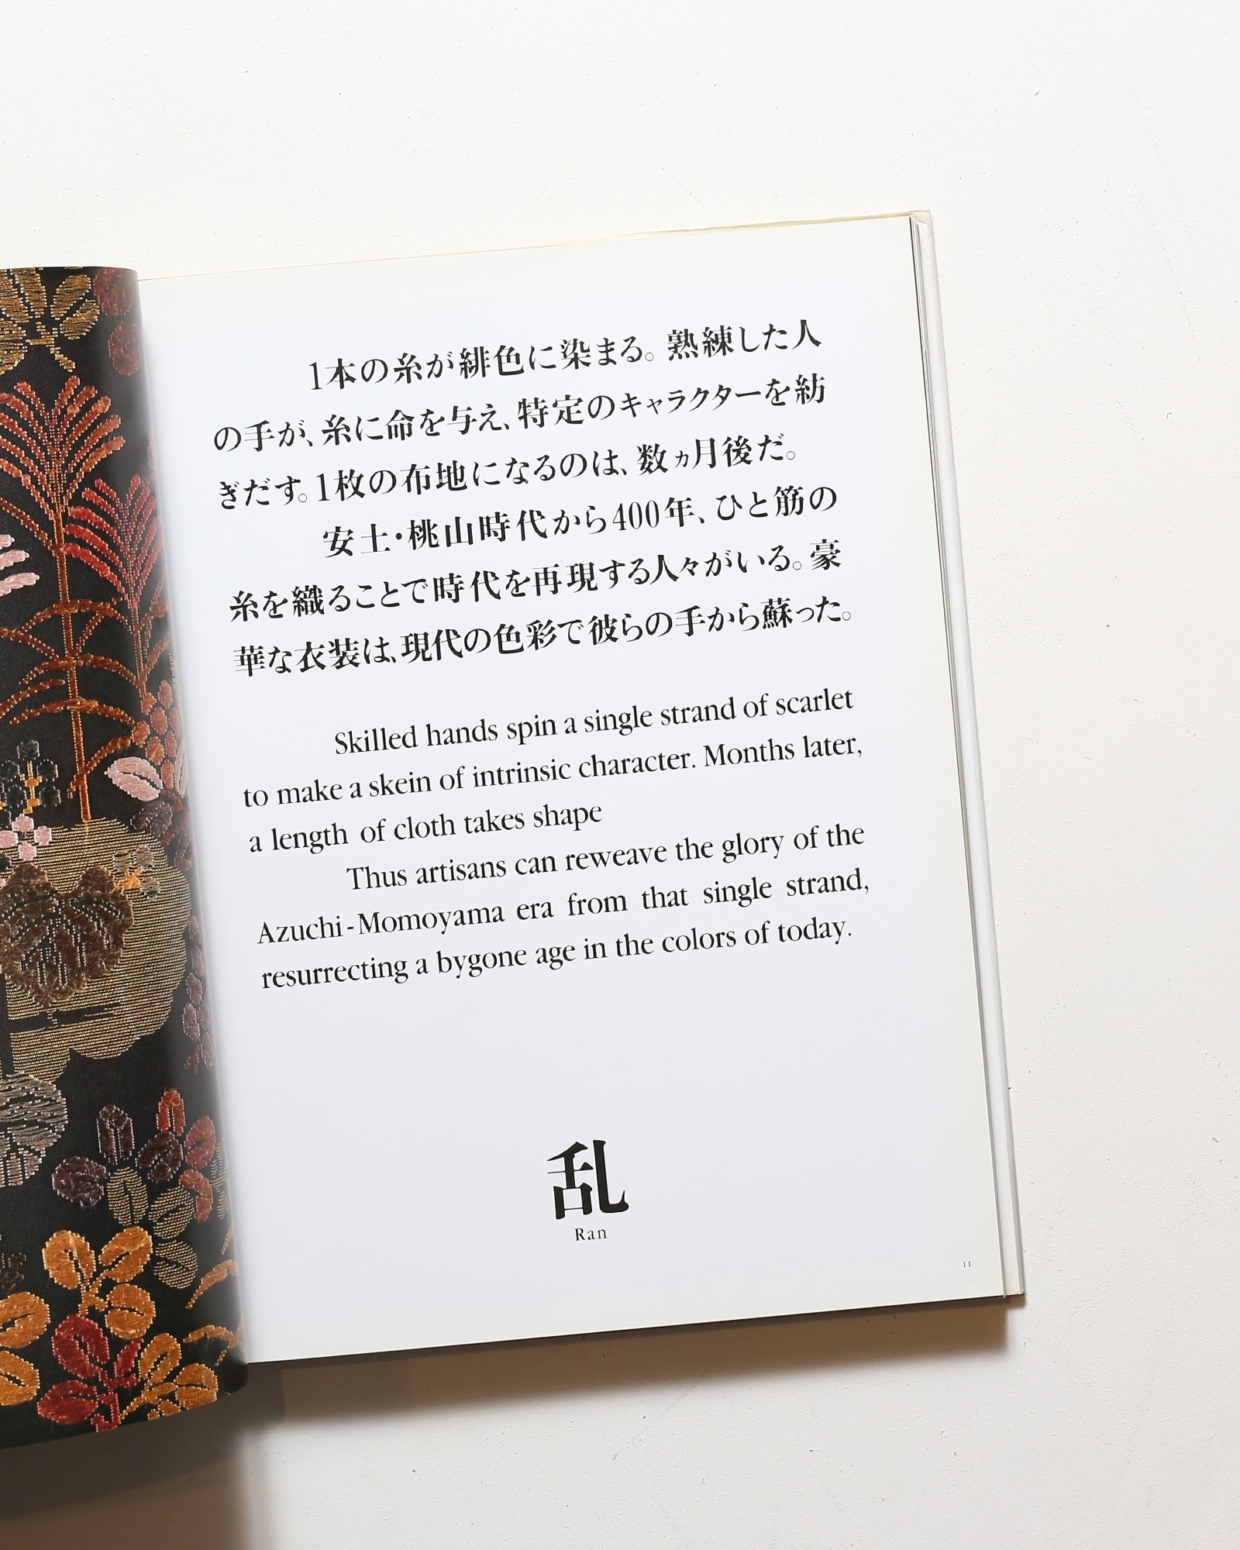 1本の糸が緋色に染まる。熟練した人
の手が、糸に命を与え、特定のキャラクターを紡
ぎだす。1枚の布地になるのは、数ヵ月後だ。
安土・桃山時代から400年、ひと筋の
糸を織ることで時代を再現する人々がいる。豪
華な衣装は、現代の色彩で彼らの手から蘇った。
Skilled hands spin a single strand of scarlet
to make a skein of intrinsic character. Months later,
a length of cloth takes shape
Thus artisans can reweave the glory of the
Azuchi-Momoyama era from that single strand,
resurrecting a bygone age in the colors of today.
乱
Ran
11